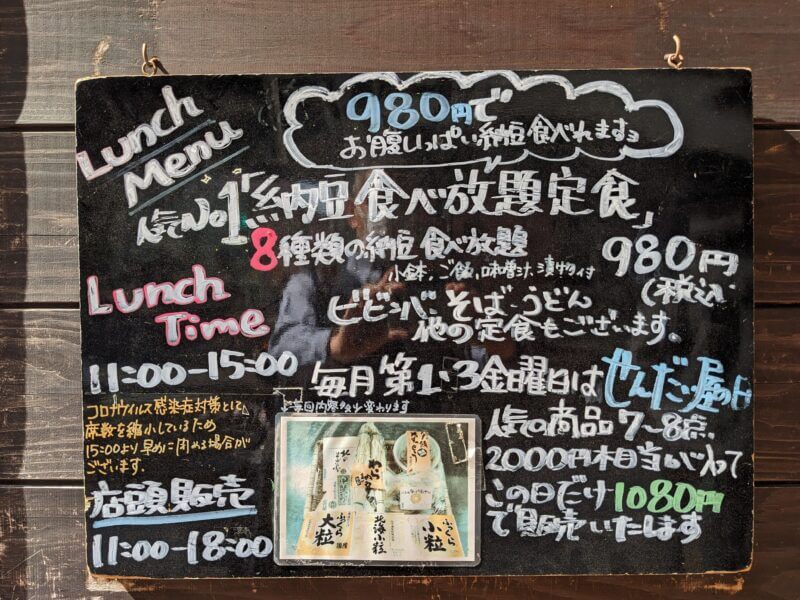 Lunch
Menu
980円で
お腹いっぱい納豆食べれますヨ
人気No1「納豆食べ放題定食」
8種類の納豆食べ放題
980円
小鉢、ご飯、味噌汁、漬物付
(税込
Lunch
Time
ビビンバ、そば・うどん
他の定食もございます。
11:00-15:00
毎月第1・3金曜日はせんだい屋の日
コロナウイルス感染症対策として
席数を縮小しているため
15:00より早めに閉める場合が
ございます。
店頭販売
11:00-18:00
↓毎回内容が少し変わります
人気の商品7〜8点
2000円相当がいわて
この日だけ1080円
で販売いたします
ふっくら
大粒
国産
北海小粒
ふっくら
小粒